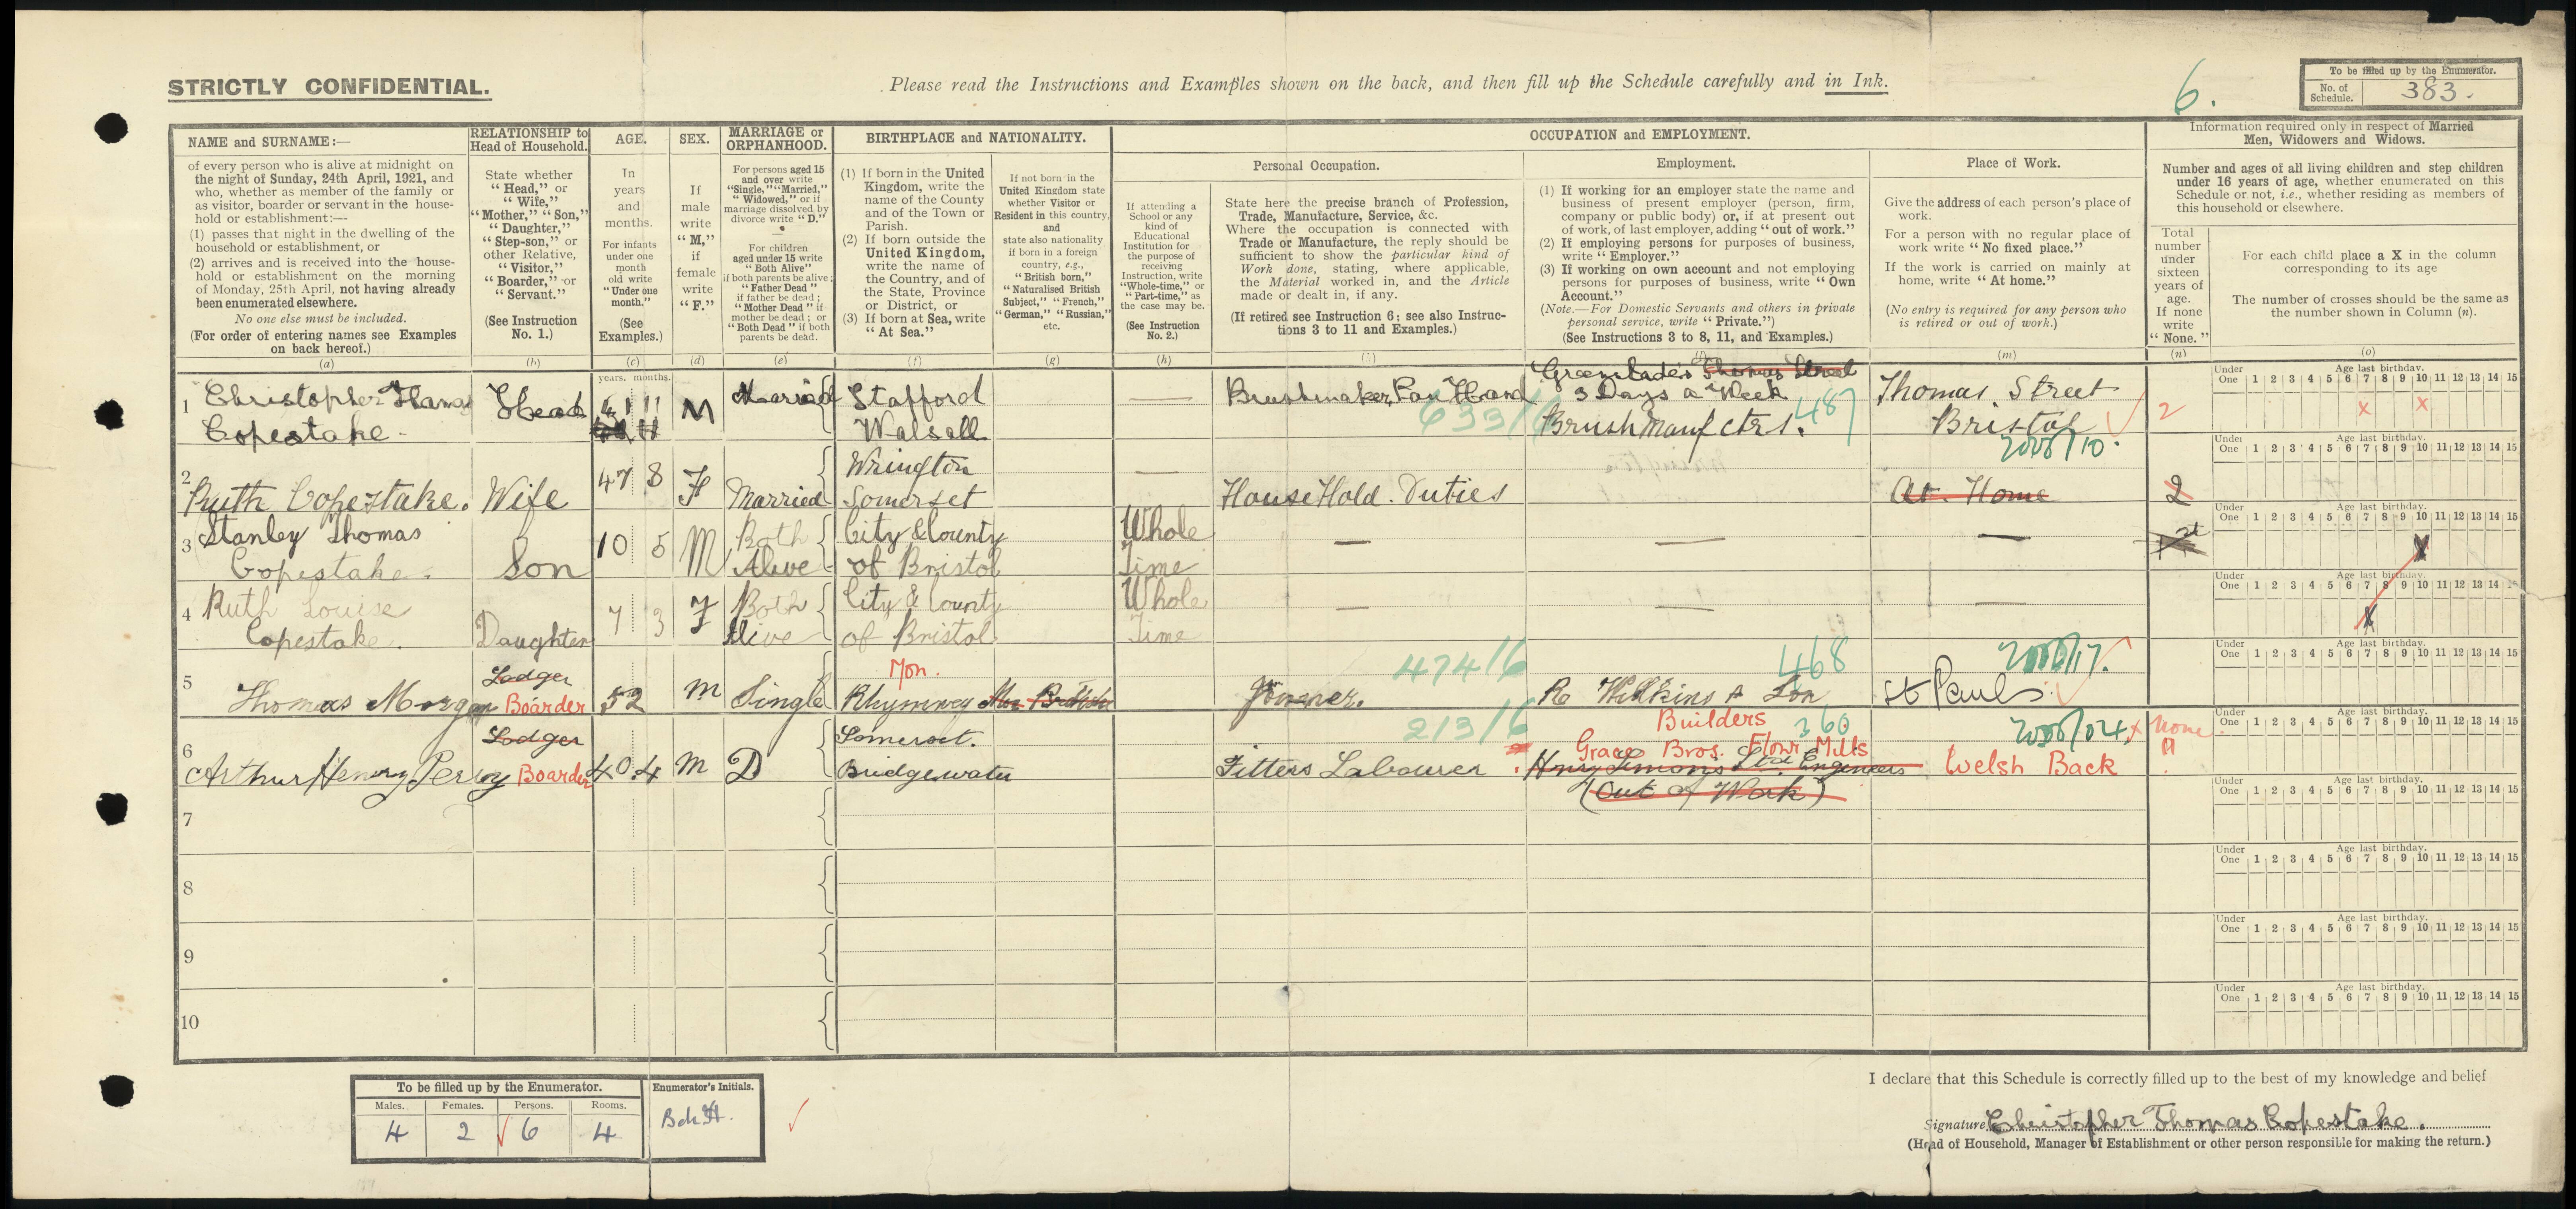 STRICTLY CONFIDENTIAL.
Please read the Instructions and Examples shown on the back, and then fill up the Schedule carefully and in Ink.
6.
To be filled up by the Enumerator.
No. of Schedule. 383.
NAME and SURNAME:—
of every person who is alive at midnight on
the night of Sunday, 24th April, 1921, and
who, whether as member of the family or
as visitor, boarder or servant in the house-
hold or establishment:—
(1) passes that night in the dwelling of the
household or establishment, or
(2) arrives and is received into the house-
hold or establishment on the morning
of Monday, 25th April, not having already
been enumerated elsewhere.
No one else must be included.
(For order of entering names see Examples
on back hereof.)
(a)
RELATIONSHIP to
Head of Household.
State whether
"Head," or
"Wife,"
"Mother," "Son,"
"Daughter,"
"Step-son," or
other Relative,
"Visitor,"
"Boarder," or
"Servant."
(See Instruction
No. 1.)
(b)
AGE.
In
years
and
months.
For infants
under one
month
old write
"Under one
month."
(See
Examples.)
(c)
SEX.
If
male
write
"M,"
if
female
write
"F."
(d)
MARRIAGE or
ORPHANHOOD.
For persons aged 15
and over write
"Single," "Married,"
"Widowed," or if
marriage dissolved by
divorce write "D."
For children
aged under 15 write
"Both Alive"
if both parents be alive;
"Father Dead"
if father be dead;
"Mother Dead" if
mother be dead; or
"Both Dead" if both
parents be dead.
(e)
BIRTHPLACE and NATIONALITY.
(1) If born in the United
Kingdom, write the
name of the County
and of the Town or
Parish.
(2) If born outside the
United Kingdom,
write the name of
the Country, and of
the State, Province
or District, or
(3) If born at Sea, write
"At Sea."
(f)
If not born in the
United Kingdom state
whether Visitor or
Resident in this country,
and
state also nationality
if born in a foreign
country, e.g.,
"British born,"
"Naturalised British
Subject," "French,"
"German," "Russian,"
etc.
(g)
OCCUPATION and EMPLOYMENT.
Personal Occupation.
If attending a
School or any
kind of
Educational
Institution for
the purpose of
receiving
Instruction, write
"Whole-time," or
"Part-time," as
the case may be.
(See Instruction
No. 2.)
(h)
State here the precise branch of Profession,
Trade, Manufacture, Service, &c.
Where the occupation is connected with
Trade or Manufacture, the reply should be
sufficient to show the particular kind of
Work done, stating, where applicable,
the Material worked in, and the Article
made or dealt in, if any.
(If retired see Instruction 6; see also Instruc-
tions 3 to 11 and Examples.)
Employment.
(1) If working for an employer state the name and
business of present employer (person, firm,
company or public body) or, if at present out
of work, of last employer, adding "out of work."
(2) If employing persons for purposes of business,
write "Employer."
(3) If working on own account and not employing
persons for purposes of business, write "Own
Account."
(Note.—For Domestic Servants and others in private
personal service, write "Private.")
(See Instructions 3 to 8, 11, and Examples.)
Place of Work.
Give the address of each person's place of
work.
For a person with no regular place of
work write "No fixed place."
If the work is carried on mainly at
home, write "At home."
(No entry is required for any person who
is retired or out of work.)
(m)
Information required only in respect of Married
Men, Widowers and Widows.
Number and ages of all living children and step children
under 16 years of age, whether enumerated on this
Schedule or not, i.e., whether residing as members of
this household or elsewhere.
Total
number
under
sixteen
years of
age.
If none
write
"None."
(n)
For each child place a X in the column
corresponding to its age
The number of crosses should be the same as
the number shown in Column (n).
(o)
years. months.
Under One 1 2 3 4 5 6 7 8 9 10 11 12 13 14 15
Age last birthday.
1 Christopher Thomas Copestake Head M Married Stafford Walsall — Brushmaker, Pan Hand 3 Days a Week Brush Manufctrs. Thomas Street Bristol 2
Thomas Street
633/ 487
2 Ruth Copestake. Wife 47 8 F Married Wrington Somerset — HouseHold Duties At Home 2
3 Stanley Thomas Copestake. Son 10 5 M Both Alive City & County of Bristol Whole Time — — —
4 Ruth Louise Copestake. Daughter 7 3 F Both Alive City & County of Bristol Whole Time — — —
5 Thomas Morgan Lodger Boarder 52 M Single Mon. Rhymney Joiner. R Wilkins & Son Builders St Pauls
474/6 468
6 Arthur Henry Percy Lodger Boarder 40.4 M D Somerset. Bridgewater Fitters Labourer Henry Simons Ltd Engineers (Out of Work) Grace Bros. Flour Mills Welsh Back None
213/6 360
7
8
9
10
To be filled up by the Enumerator.
Males. Females. Persons. Rooms.
4 2 6 4
Enumerator's Initials.
I declare that this Schedule is correctly filled up to the best of my knowledge and belief
Signature Christopher Thomas Copestake.
(Head of Household, Manager of Establishment or other person responsible for making the return.)